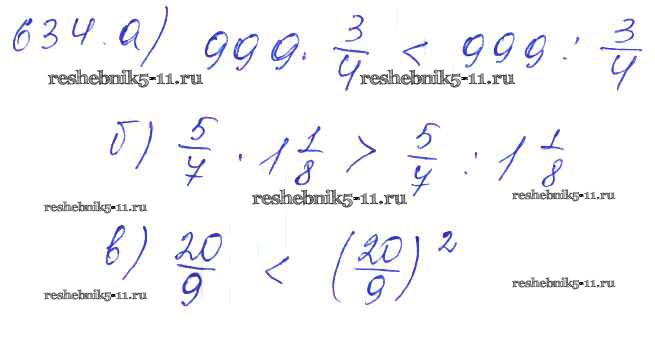 634. а) 999 · 3/4 < 999 : 3/4
reshebnik5-11.ru reshebnik5-11.ru
б) 5/7 · 1 1/8 > 5/7 : 1 1/8
reshebnik5-11.ru reshebnik5-11.ru reshebnik5-11.ru
в) 20/9 < (20/9)²
reshebnik5-11.ru reshebnik5-11.ru